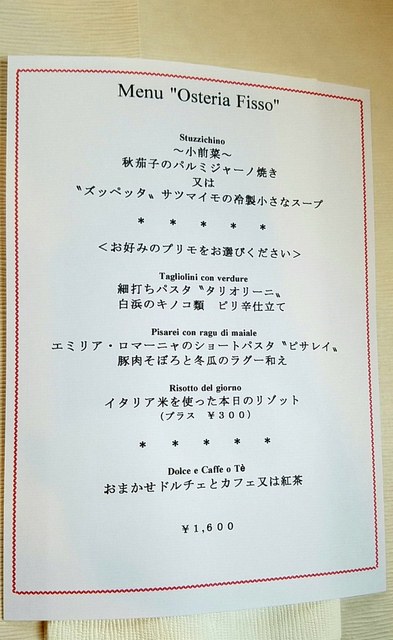 Menu "Osteria Fisso"
Stuzzichino
～小前菜～
秋茄子のパルミジャーノ焼き
又は
〝ズッペッタ〟サツマイモの冷製小さなスープ
＊ ＊ ＊ ＊ ＊
＜お好みのプリモをお選びください＞
Tagliolini con verdure
細打ちパスタ〝タリオリーニ〟
白浜のキノコ類 ピリ辛仕立て
Pisarei con ragu di maiale
エミリア・ロマーニャのショートパスタ〝ピサレイ〟
豚肉そぼろと冬瓜のラグー和え
Risotto del giorno
イタリア米を使った本日のリゾット
（プラス ￥３００）
＊ ＊ ＊ ＊ ＊
Dolce e Caffe o Tè
おまかせドルチェとカフェ又は紅茶
￥１,６００